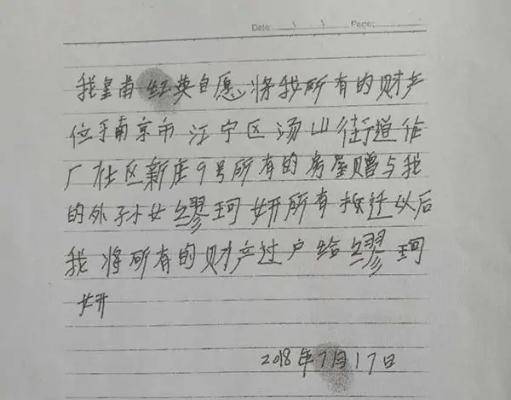 Date: Page:
我皇甫红英自愿将我所有的财产
位于南京市江宁区汤山街道作
厂社区新庄9号所有的房屋赠与我
的外孙女缪珂妍所有拆迁以后
我将所有的财产过户给缪珂
妍
2018年7月17日